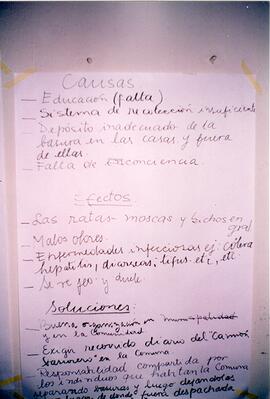 Causas
— Educación (falta)
— Sistema de recolección insuficiente
— Depósito inadecuado de la
basura en las casas y fuera
de ellas.
— Falta de conciencia.
Efectos
— Las ratas - moscas y bichos en
gral
— Malos olores.
— Enfermedades infecciosas ej: cólera
hepatitis, diarreas, tifus. etc, etc.
— Se ve feo y duele.
Soluciones:
— Buena organización en municipalidad
y en la Comunidad
— Exigir recorrido diario del "Camión
basurero" en la Comuna
— Responsabilidad compartida por
los individuos que habitan la Comuna
separando basuras y luego dejándolas
donde fuera despachada